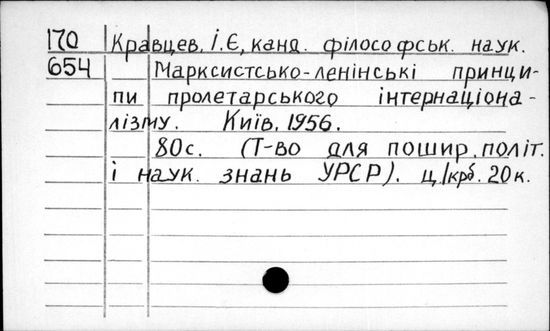 170 Кравцев, І.Є, канд. філософськ. наук.
654 Марксистсько-ленінські принци-
пи пролетарського інтернаціона-
лізму. Київ, 1956.
80с. (Т-во для пошир. політ.
і наук. знань УРСР). ц/крб. 20к.